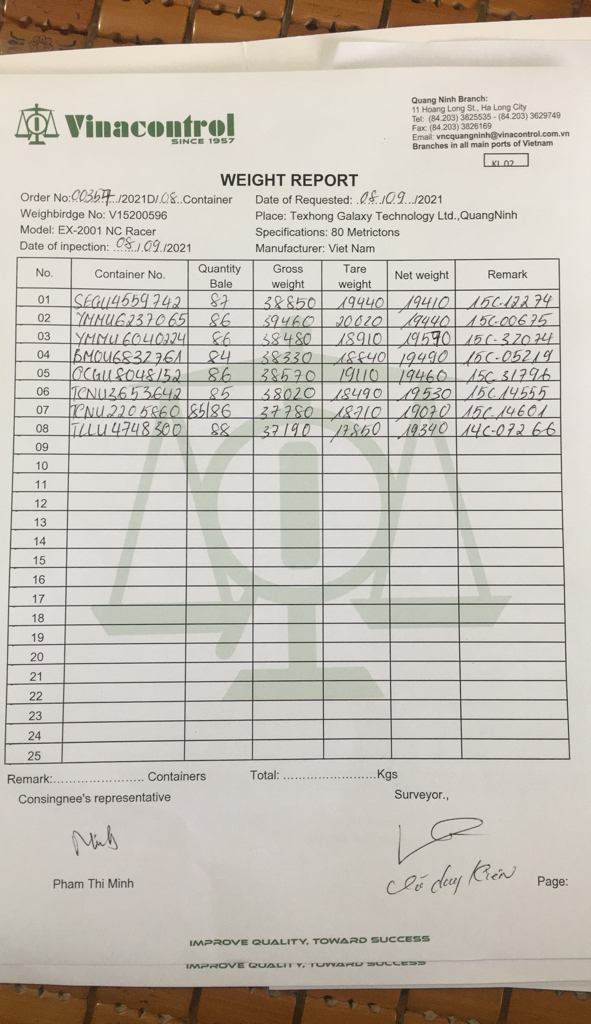 Vinacontrol
SINCE 1957
Quang Ninh Branch:
11 Hoang Long St., Ha Long City
Tel: (84.203) 3825535 - (84.203) 3629749
Fax: (84.203) 3826169
Email: vncquangninh@vinacontrol.com.vn
Branches in all main ports of Vietnam
KL 02
WEIGHT REPORT
Order No:00357../2021D/.08..Container Date of Requested: .08./.09.../2021
Weighbirdge No: V15200596 Place: Texhong Galaxy Technology Ltd.,QuangNinh
Model: EX-2001 NC Racer Specifications: 80 Metrictons
Date of inpection: .08../.09./2021 Manufacturer: Viet Nam
No. Container No. Quantity Bale Gross weight Tare weight Net weight Remark
01 SEGU4559742 87 38850 19440 19410 15C-12274
02 YMMU6237065 86 39460 20020 19440 15C-00675
03 YMMU6040224 86 38480 18910 19570 15C-32074
04 BMOU6832761 84 38330 18840 19490 15C-05219
05 OCGU8048152 86 38570 19110 19460 15C-31796
06 TCNU3653642 85 38020 18490 19530 15C-14555
07 TCNU2205860 85/86 37780 18710 19070 15C-14601
08 TLLU4748300 88 37190 17850 19340 14C-07266
09
10
11
12
13
14
15
16
17
18
19
20
21
22
23
24
25
Remark:...................... Containers Total: .......................Kgs
Consingnee's representative Surveyor.,
Minh
Pham Thi Minh
Page:
IMPROVE QUALITY, TOWARD SUCCESS
IMPROVE QUALITY, TOWARD SUCCESS